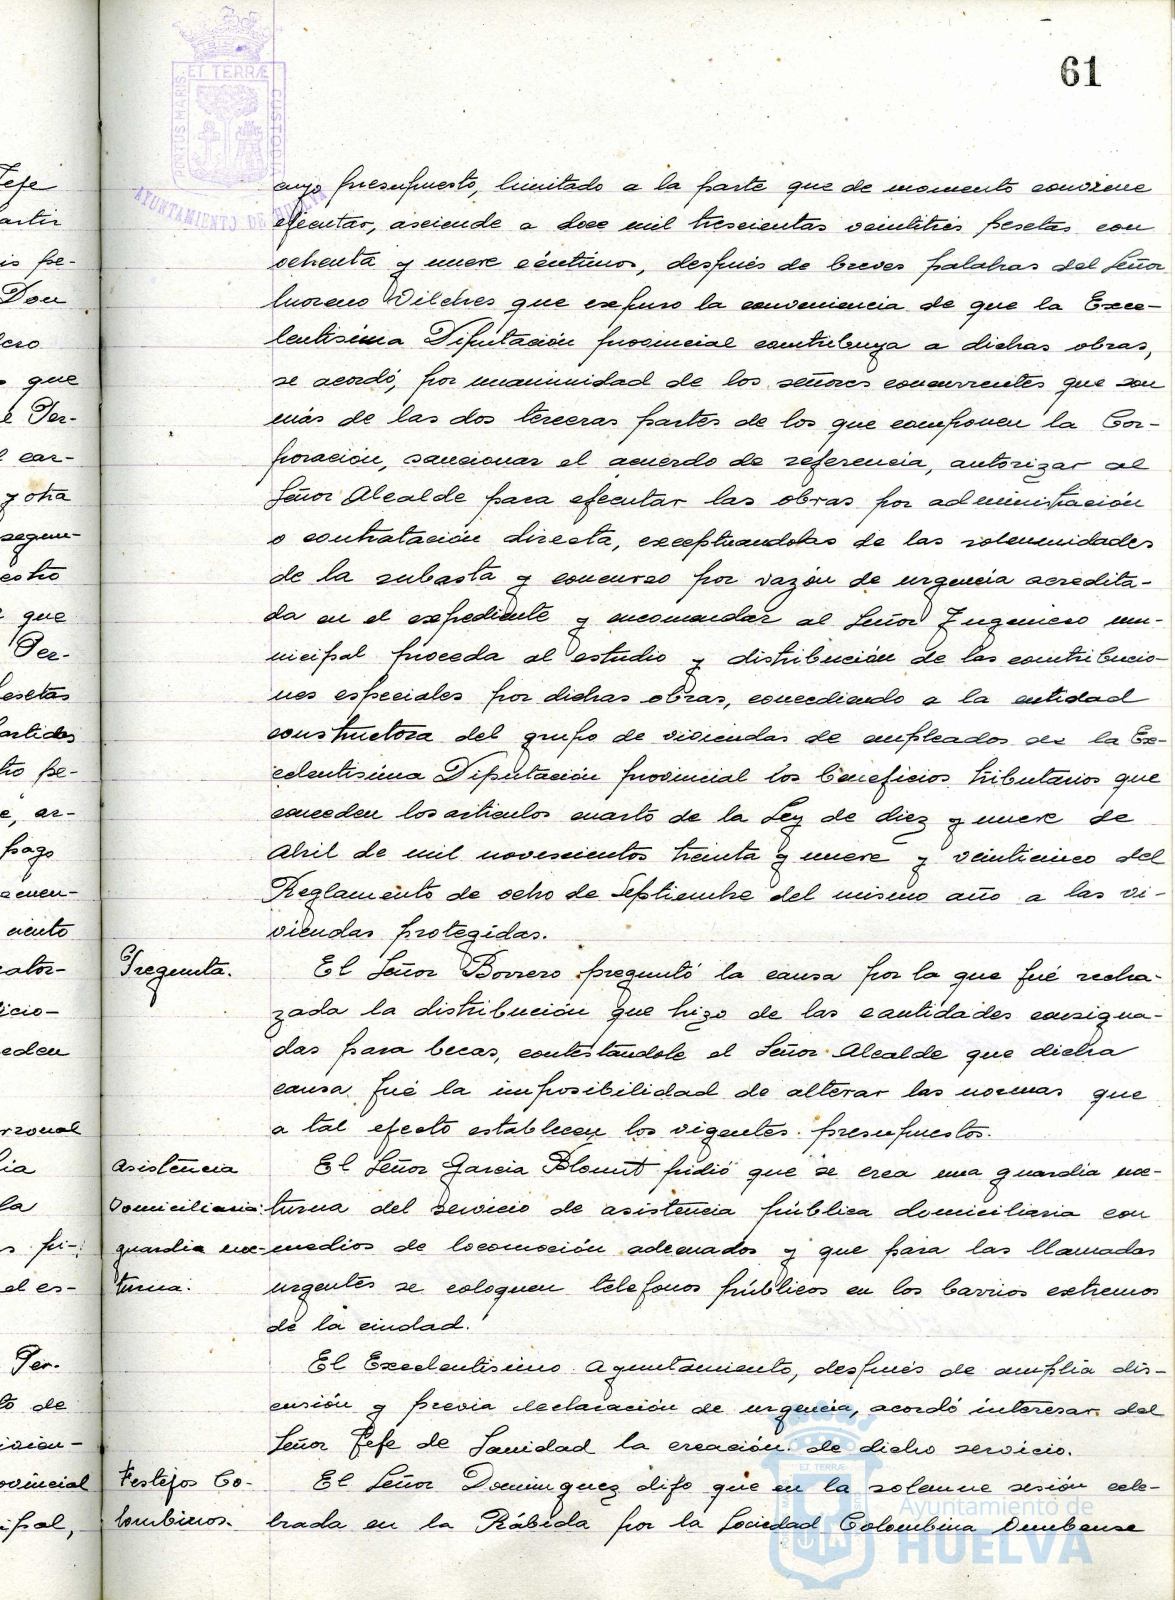 61
PORTUS MARIS ET TERRÆ CUSTODIA
AYUNTAMIENTO DE HUELVA
cuyo presupuesto, limitado a la parte que de momento conviene
ejecutar, asciende a doce mil trescientas veintitrés pesetas con
ochenta y nueve céntimos, después de breves palabras del Señor
Moreno Vilches que expuso la conveniencia de que la Exce-
lentísima Diputación provincial contribuya a dichas obras,
se acordó, por unanimidad de los señores concurrentes que son
más de las dos terceras partes de los que componen la Cor-
poración, sancionar el acuerdo de referencia, autorizar al
Señor Alcalde para ejecutar las obras por administración
o contratación directa, exceptuandolas de las solemnidades
de la subasta y concurso por razón de urgencia acredita-
da en el expediente y encomendar al Señor Ingeniero mu-
nicipal proceda al estudio y distribución de las contribucio-
nes especiales por dichas obras, concediendo a la entidad
constructora del grupo de viviendas de empleados de la Ex-
celentísima Diputación provincial los beneficios tributarios que
conceden los articulos cuarto de la Ley de diez y nueve de
Abril de mil novescientos treinta y nueve y veinticinco del
Reglamento de ocho de Septiembre del mismo año a las vi-
viendas protegidas.
Pregunta.
El Señor Borrero preguntó la causa por la que fué recha-
zada la distribución que hizo de las cantidades consigna-
das para becas, contestándole el Señor Alcalde que dicha
causa fué la imposibilidad de alterar las normas que
a tal efecto establecen los vigentes presupuestos.
Asistencia
Domiciliaria:
guardia noc-
turna.
El Señor García Blount pidió que se crea una guardia noc-
turna del servicio de asistencia pública domiciliaria con
medios de locomoción adecuados y que para las llamadas
urgentes se coloquen teléfonos públicos en los barrios extremos
de la ciudad.
El Excelentísimo Ayuntamiento, después de amplia dis-
cusión y previa declaración de urgencia, acordó interesar del
Señor Jefe de Sanidad la creación de dicho servicio.
Festejos Co-
lombinos.
El Señor Dominguez dijo que en la solemne sesión cele-
brada en la Rábida por la Sociedad Colombina Onubense
Ayuntamiento de
HUELVA